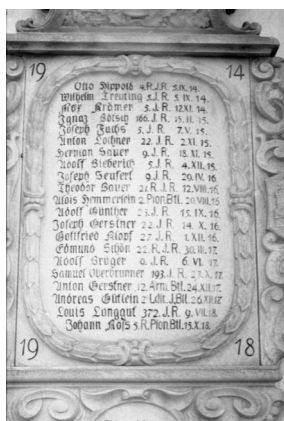 19 14
Otto Hippold 4.R.J.R. 5.IX.14.
Wilhelm Treuting 5.J.R. 5.IX.14.
Max Krämer 5.J.R. 12.XI.14.
Ignaz Götsch 166.J.R. 15.II.15.
Joseph Fuchs 5.J.R. 7.V.15.
Anton Lochner 22.J.R. 2.XI.15.
Herman Sauer 9.J.R. 18.XI.15.
Adolf Sieberich 5.J.R. 4.XII.15.
Joseph Seufert 9.J.R. 29.IV.16
Theodor Sauer 21.R.J.R. 12.VIII.16.
Alois Hemmerlein 2.Pion.Btl. 20.VIII.16
Adolf Günther 23.J.R. 15.IX.16.
Joseph Gerstner 22.J.R. 14.X.16.
Gottfried Klopf 27.J.R. 1.XII.16.
Edmund Schön 22.R.J.R. 30.III.17.
Adolf Gruger 9.J.R. 6.VI.17.
Samuel Oberbrunner 193.J.R. 23.X.17.
Anton Gerstner 12.Arm.Btl. 24.XII.17.
Andreas Gütlein 2.Ldst.J.Btl. 26.XII.17
Louis Longgut 372.J.R. 9.VII.18.
Johann Roß 5.R.Pion.Btl. 15.X.18.
19 18